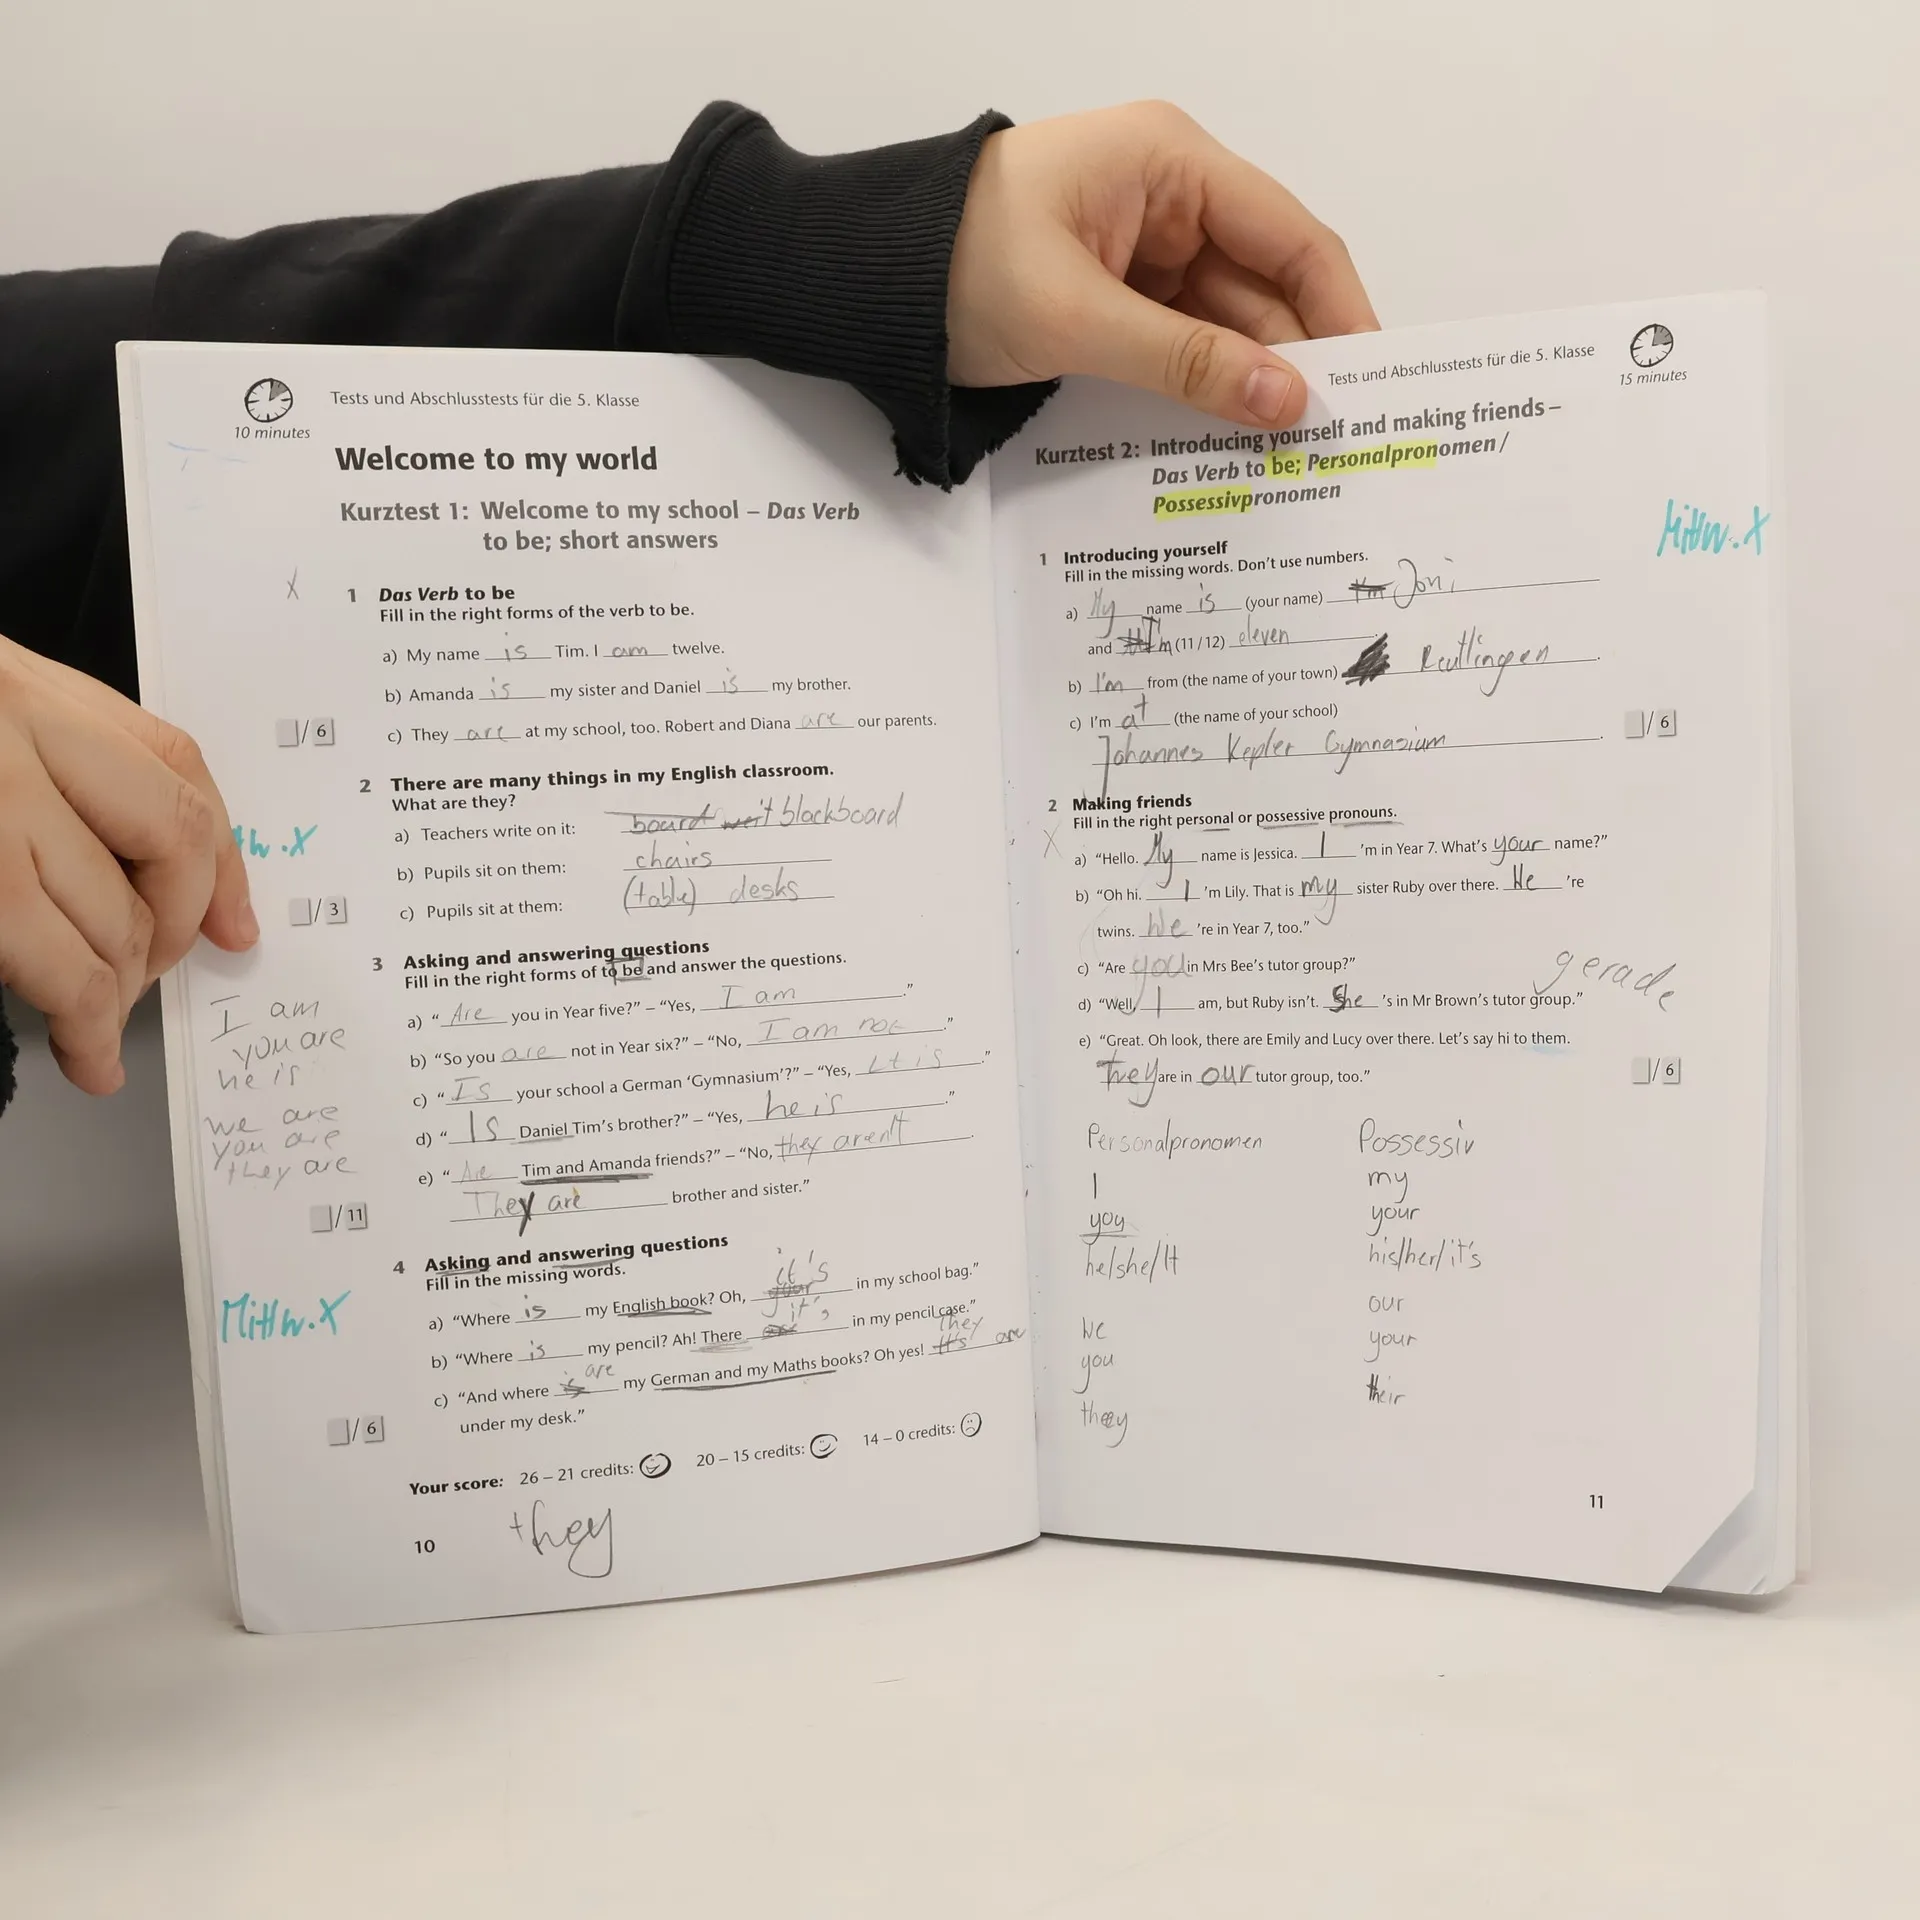 Tests und Abschlusstests für die 5. Klasse
10 minutes
Welcome to my world
Kurztest 1: Welcome to my school – Das Verb
to be; short answers
X
1 Das Verb to be
Fill in the right forms of the verb to be.
a) My name is Tim. I am twelve.
b) Amanda is my sister and Daniel is my brother.
c) They are at my school, too. Robert and Diana are our parents.
/ 6
2 There are many things in my English classroom.
What are they?
a) Teachers write on it: board blackboard
b) Pupils sit on them: chairs
c) Pupils sit at them: (table) desks
w.X
/ 3
3 Asking and answering questions
Fill in the right forms of to be and answer the questions.
a) “Are you in Year five?” – “Yes, I am.”
b) “So you are not in Year six?” – “No, I am not.”
c) “Is your school a German ‘Gymnasium’?” – “Yes, it is.”
d) “Is Daniel Tim’s brother?” – “Yes, he is.”
e) “Are Tim and Amanda friends?” – “No, they aren't.
They are brother and sister.”
I am
you are
he is
we are
you are
they are
/ 11
4 Asking and answering questions
Fill in the missing words.
a) “Where is my English book? Oh, your it's in my school bag.”
b) “Where is my pencil? Ah! There it's in my pencil case.”
c) “And where is are my German and my Maths books? Oh yes! It's they are
under my desk.”
Mittw.X
/ 6
Your score: 26 – 21 credits: 20 – 15 credits: 14 – 0 credits:
10
they
Tests und Abschlusstests für die 5. Klasse
15 minutes
Kurztest 2: Introducing yourself and making friends –
Das Verb to be; Personalpronomen /
Possessivpronomen
Mittw.X
1 Introducing yourself
Fill in the missing words. Don’t use numbers.
a) My name is (your name) I'm Joni
and I'm (11 / 12) eleven.
b) I'm from (the name of your town) Reutlingen.
c) I’m at (the name of your school)
Johannes Kepler Gymnasium.
/ 6
2 Making friends
Fill in the right personal or possessive pronouns.
X
a) “Hello. My name is Jessica. I ’m in Year 7. What’s your name?”
b) “Oh hi. I ’m Lily. That is my sister Ruby over there. We ’re
twins. We ’re in Year 7, too.”
c) “Are you in Mrs Bee’s tutor group?”
gerade
d) “Well, I am, but Ruby isn’t. She ’s in Mr Brown’s tutor group.”
e) “Great. Oh look, there are Emily and Lucy over there. Let’s say hi to them.
They are in our tutor group, too.”
/ 6
Personalpronomen Possessiv
I my
you your
he/she/It his/her/it's
we our
you your
they their
11